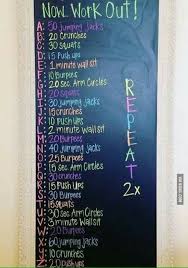 Now... Work Out!
A: 50 Jumping Jacks
B: 20 Crunches
C: 30 squats
D: 15 Push ups
E: 1 minute wall sit
F: 10 Burpees
G: 20 sec. Arm Circles
H: 20 squats
I: 30 jumping Jacks
J: 15 crunches
K: 10 Push ups
L: 2 minute wall sit
M: 20 Burpees
N: 40 jumping Jacks
O: 25 Burpees
P: 15 sec. Arm Circles
Q: 30 crunches
R: 15 Push ups
S: 30 Burpees
T: 15 squats
U: 30 sec. Arm Circles
V: 3 minute wall sit
W: 20 Burpees
X: 60 jumping Jacks
Y: 10 crunches
Z: 20 push ups
REPEAT
2x